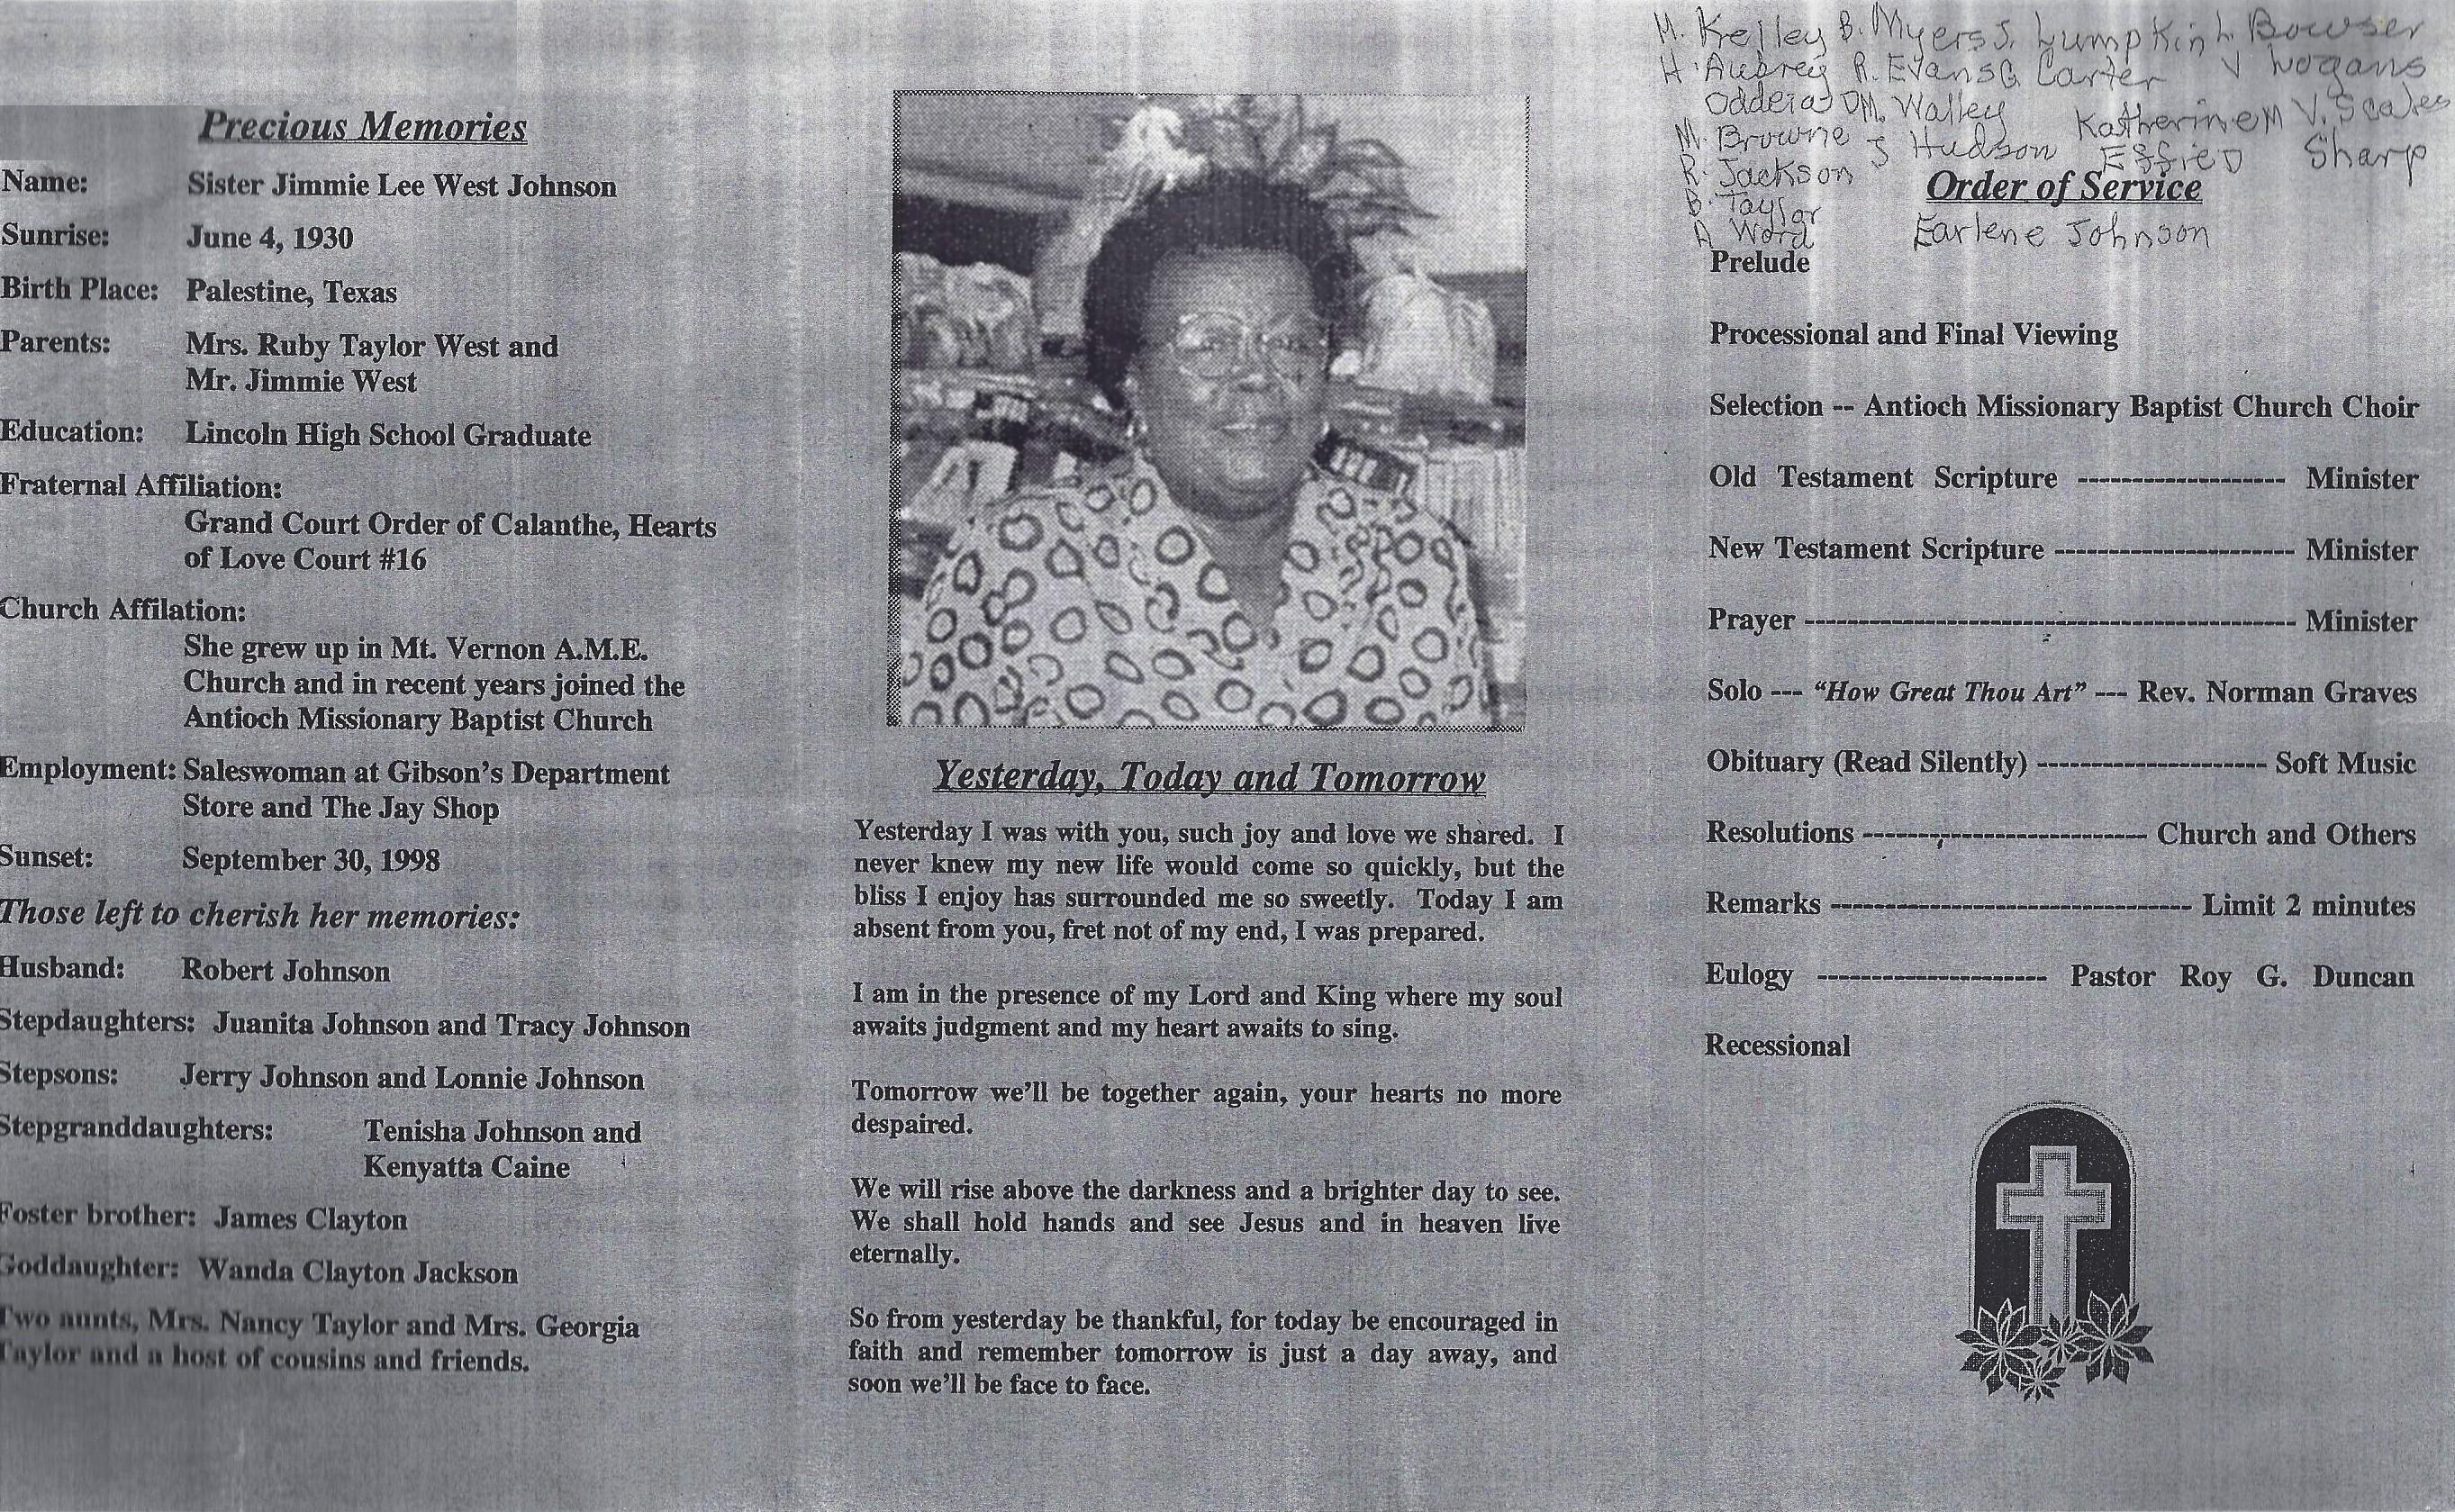 Precious Memories
Name: Sister Jimmie Lee West Johnson
Sunrise: June 4, 1930
Birth Place: Palestine, Texas
Parents: Mrs. Ruby Taylor West and
Mr. Jimmie West
Education: Lincoln High School Graduate
Fraternal Affiliation:
Grand Court Order of Calanthe, Hearts
of Love Court #16
Church Affilation:
She grew up in Mt. Vernon A.M.E.
Church and in recent years joined the
Antioch Missionary Baptist Church
Employment: Saleswoman at Gibson's Department
Store and The Jay Shop
Sunset: September 30, 1998
Those left to cherish her memories:
Husband: Robert Johnson
Stepdaughters: Juanita Johnson and Tracy Johnson
Stepsons: Jerry Johnson and Lonnie Johnson
Stepgranddaughters: Tenisha Johnson and
Kenyatta Caine
Foster brother: James Clayton
Goddaughter: Wanda Clayton Jackson
Two aunts, Mrs. Nancy Taylor and Mrs. Georgia
Taylor and a host of cousins and friends.
Yesterday, Today and Tomorrow
Yesterday I was with you, such joy and love we shared. I
never knew my new life would come so quickly, but the
bliss I enjoy has surrounded me so sweetly. Today I am
absent from you, fret not of my end, I was prepared.
I am in the presence of my Lord and King where my soul
awaits judgment and my heart awaits to sing.
Tomorrow we'll be together again, your hearts no more
despaired.
We will rise above the darkness and a brighter day to see.
We shall hold hands and see Jesus and in heaven live
eternally.
So from yesterday be thankful, for today be encouraged in
faith and remember tomorrow is just a day away, and
soon we'll be face to face.
M. Kelley B. Myers J. Lumpkin L. Bowser
H. Aubrey R. Evans G. Carter V Logans
M. Walley Katherine M V. Scales
M. Browne J Hudson Effie D Sharp
R. Jackson
B. Taylor
A Word
Order of Service
Earlene Johnson
Prelude
Processional and Final Viewing
Selection -- Antioch Missionary Baptist Church Choir
Old Testament Scripture ------------------- Minister
New Testament Scripture ---------------------- Minister
Prayer --------------------------------------------- Minister
Solo --- "How Great Thou Art" --- Rev. Norman Graves
Obituary (Read Silently) --------------------- Soft Music
Resolutions -------------------------- Church and Others
Remarks --------------------------------- Limit 2 minutes
Eulogy --------------------- Pastor Roy G. Duncan
Recessional